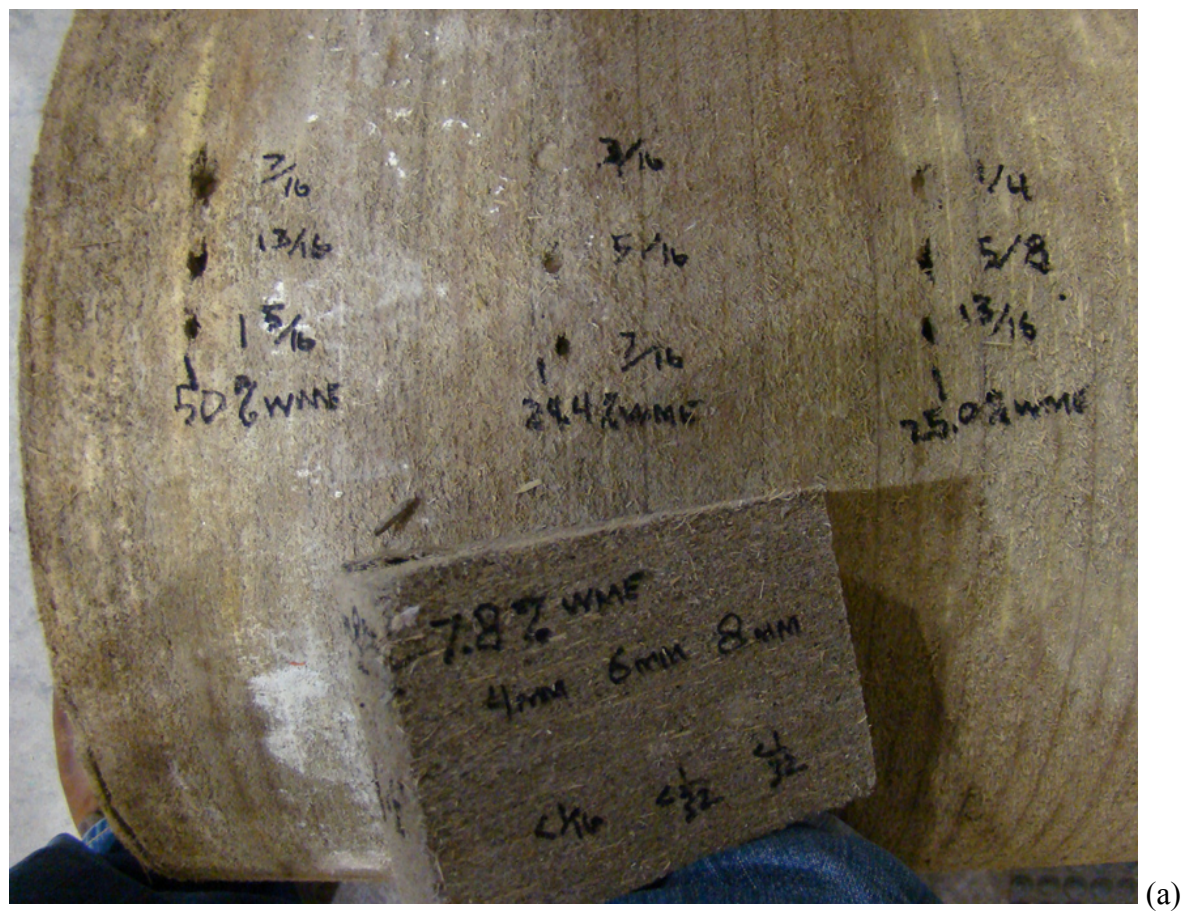 7/16
13/16
1 5/16
50 % WME
3/16
5/16
7/16
24.4 % WME
1/4
5/8
13/16
25.0 % WME
7.8 % WME
4mm 6mm 8mm
<1/16 <1/32
(a)